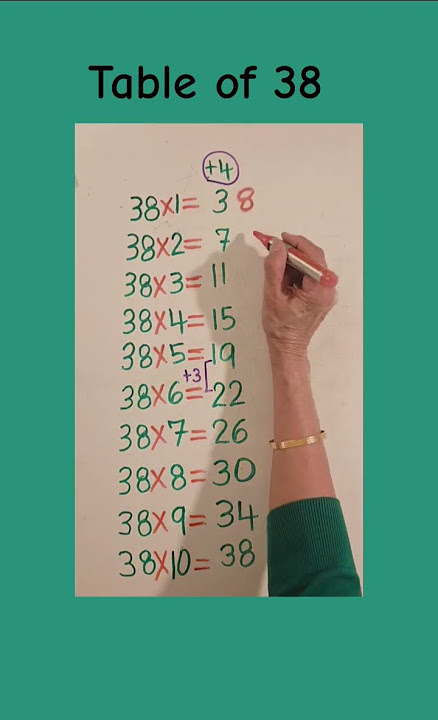 Table of 38
+4
38x1= 3 8
38x2= 7
38x3= 11
38x4= 15
38x5= 19
+3
38x6= 22
38x7= 26
38x8= 30
38x9= 34
38x10= 38